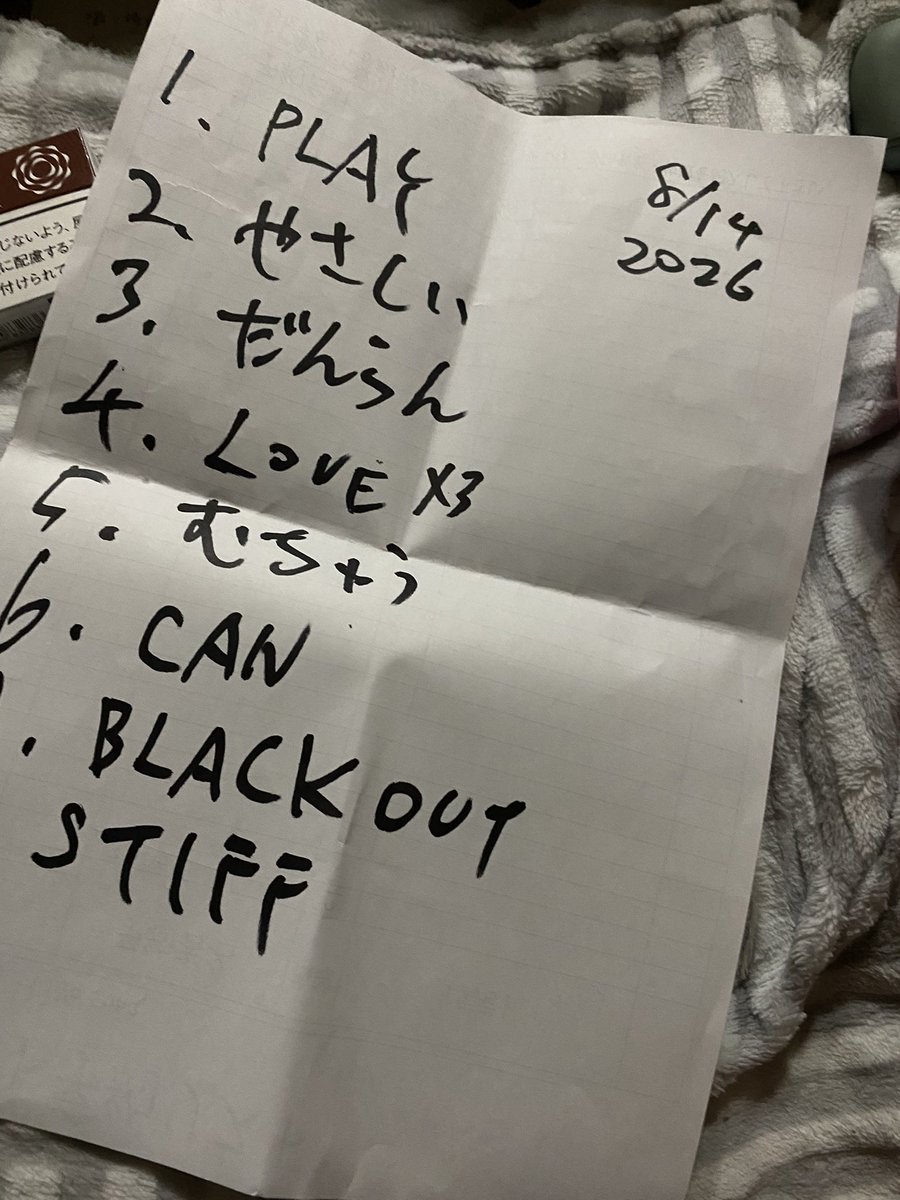 1. PLAY
2. やさしい
3. だんらん
4. LOVE X3
5. むちゅう
6. CAN
. BLACK OUT
STIFF
8/14
2026
じないよう、
に配慮する
付けられて